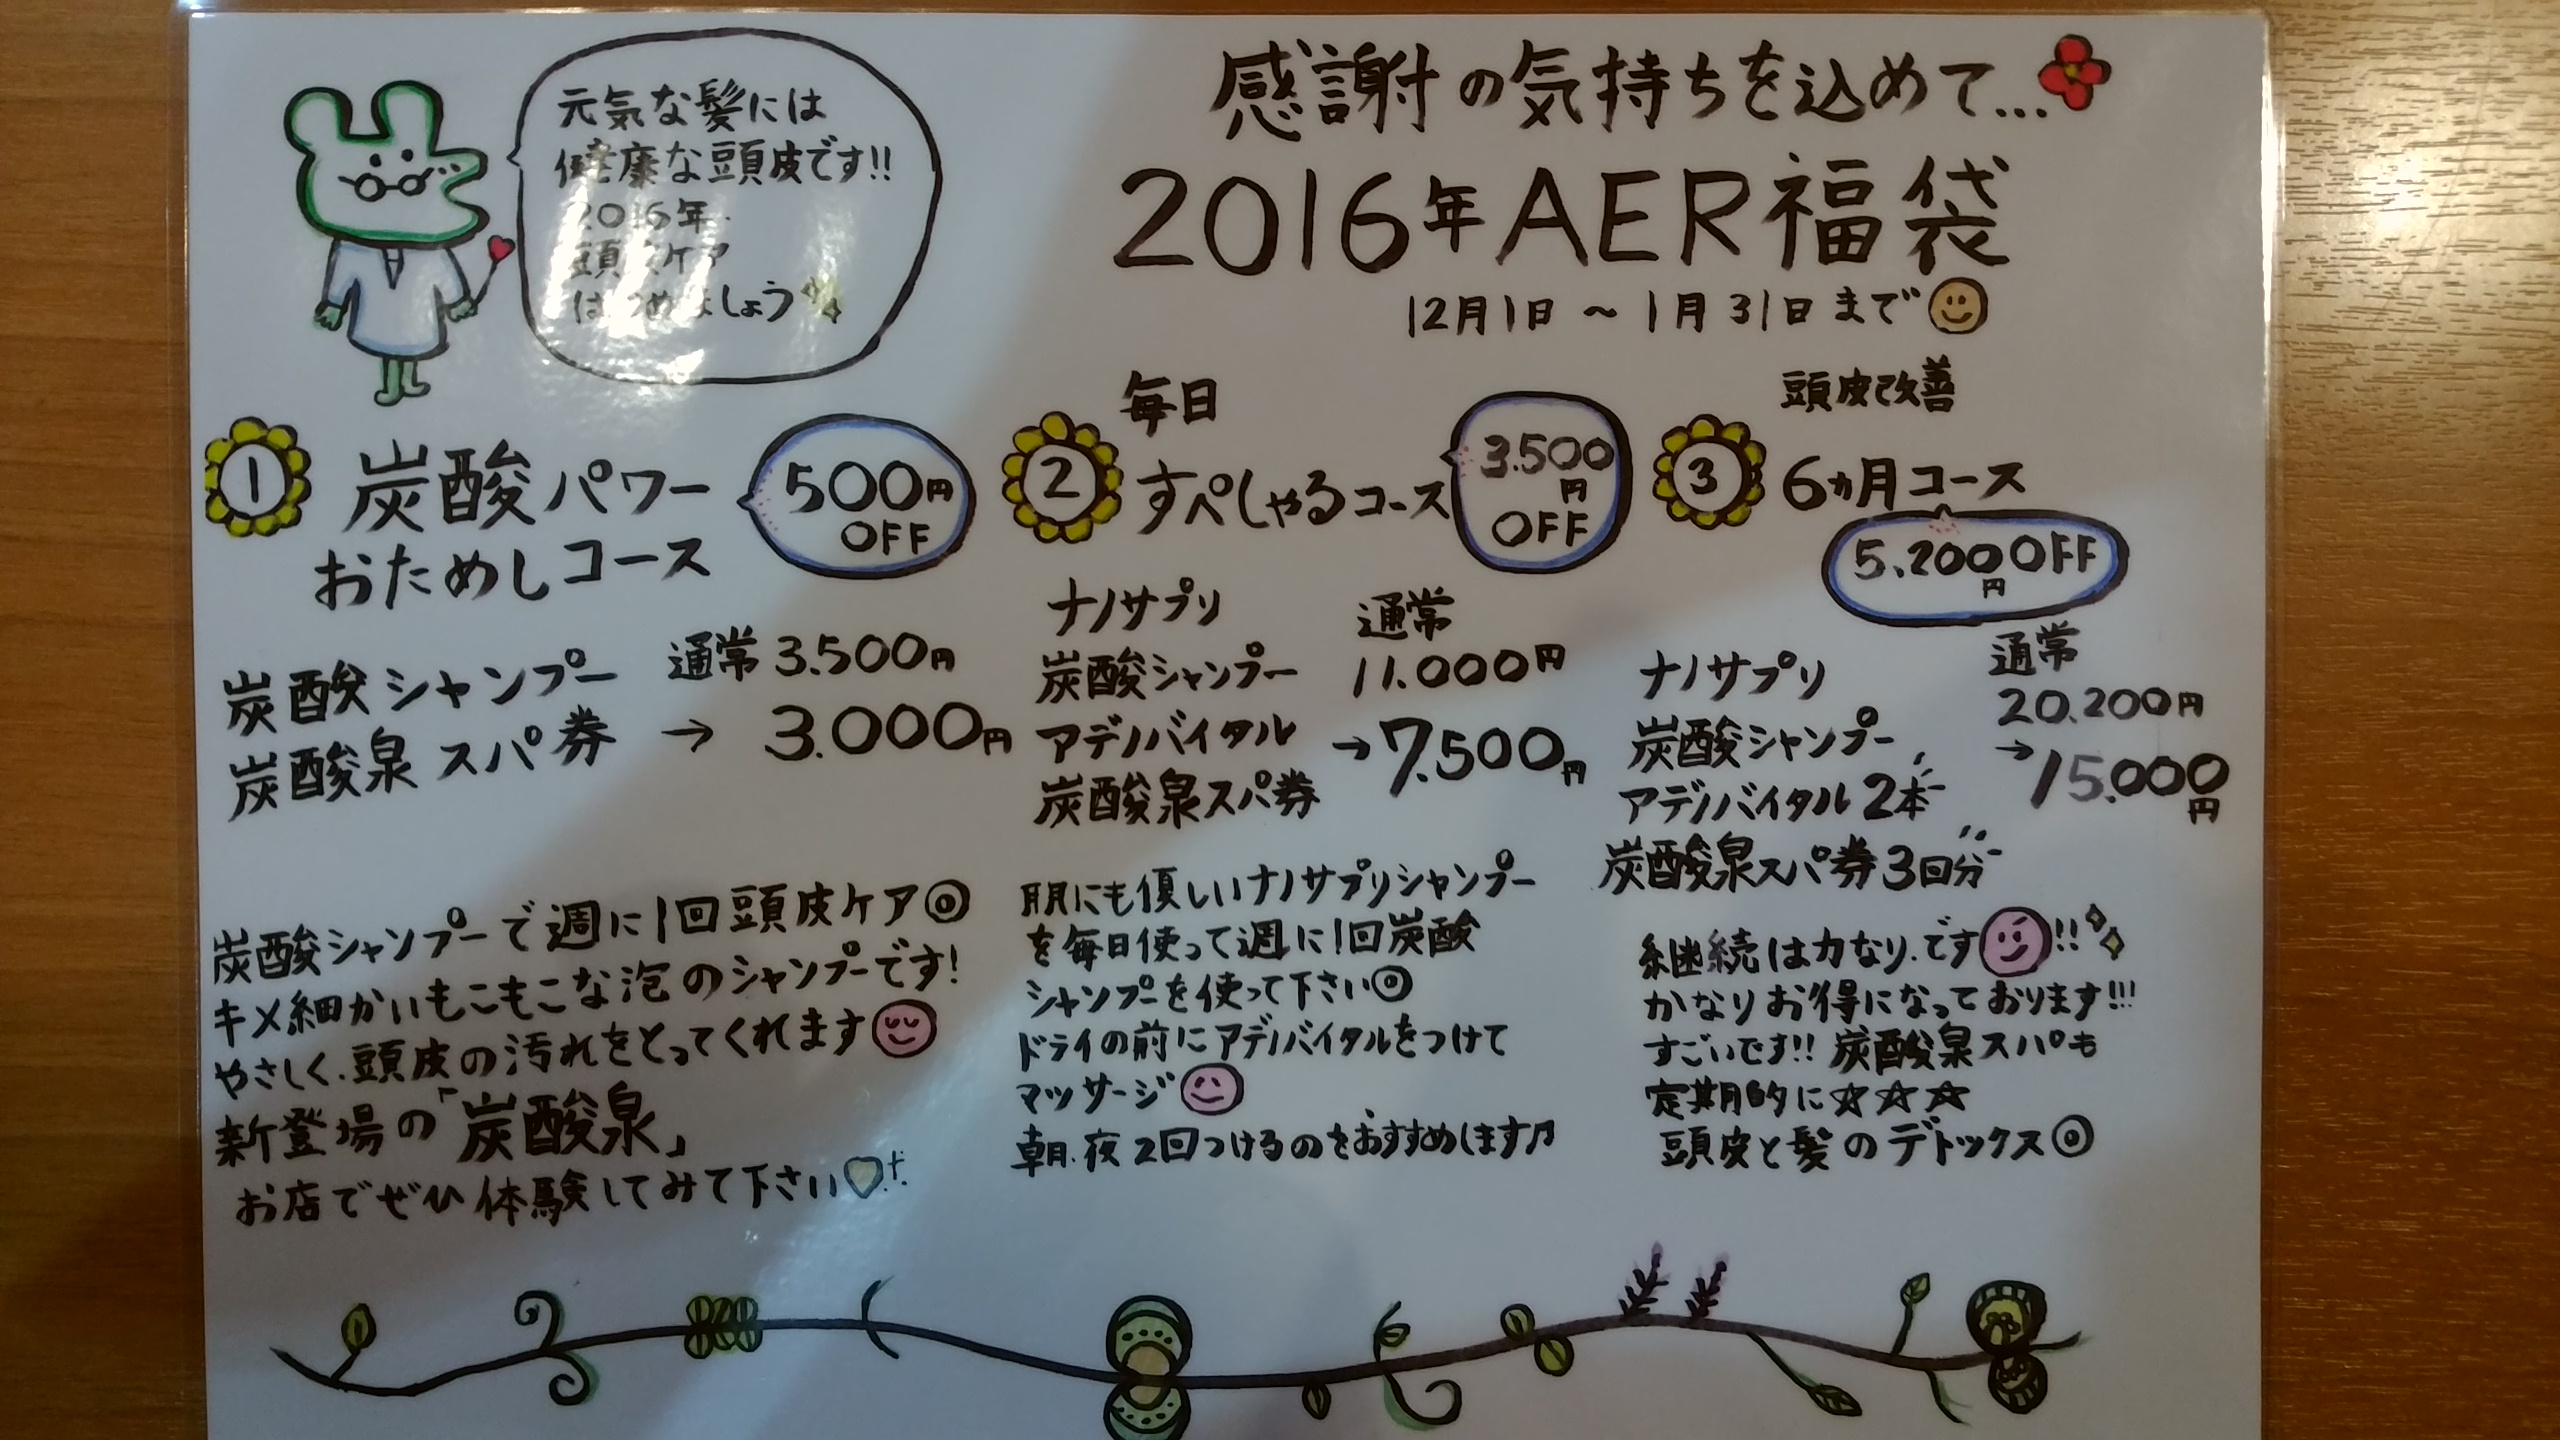 元気な髪には
健康な頭皮です!!
2016年
頭皮ケア
はじめましょう
感謝の気持ちを込めて...
2016年AER福袋
12月1日〜1月31日まで
1
炭酸パワー
おためしコース
500円
OFF
炭酸シャンプー
炭酸泉スパ券
通常3.500円
→ 3.000円
炭酸シャンプーで週に1回頭皮ケア◎
キメ細かいもこもこな泡のシャンプーです!
やさしく、頭皮の汚れをとってくれます
新登場の「炭酸泉」
お店でぜひ体験してみて下さい
2
毎日
すぺしゃるコース
3.500
円
OFF
ナノサプリ
炭酸シャンプー
アデノバイタル
炭酸泉スパ券
通常
11.000円
→7.500円
肌にも優しいナノサプリシャンプー
を毎日使って週に1回炭酸
シャンプーを使って下さい◎
ドライの前にアデノバイタルをつけて
マッサージ
朝、夜2回つけるのをおすすめします♬
3
頭皮改善
6ヵ月コース
5.200円OFF
ナノサプリ
炭酸シャンプー
アデノバイタル2本
炭酸泉スパ券3回分
通常
20.200円
→15.000円
継続は力なり、です!!
かなりお得になっております!!!
すごいです!! 炭酸泉スパも
定期的に☆☆☆
頭皮と髪のデトックス◎